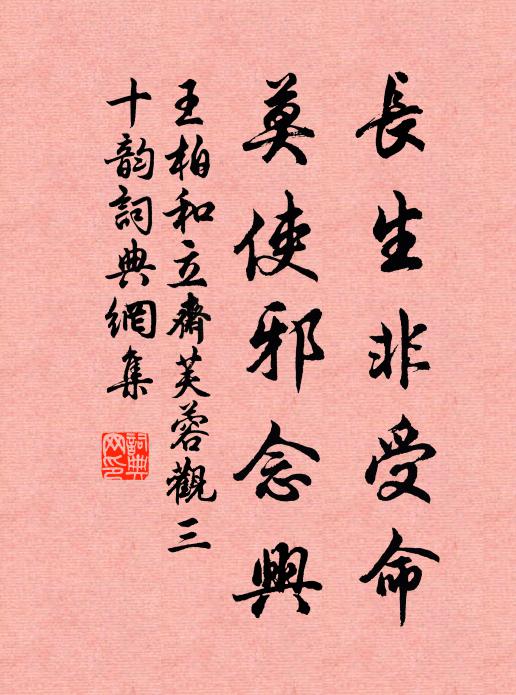 長生非受命
莫使邪念興
王柏和立齋芙蓉觀三
十韵詞典網集
詞典
网印